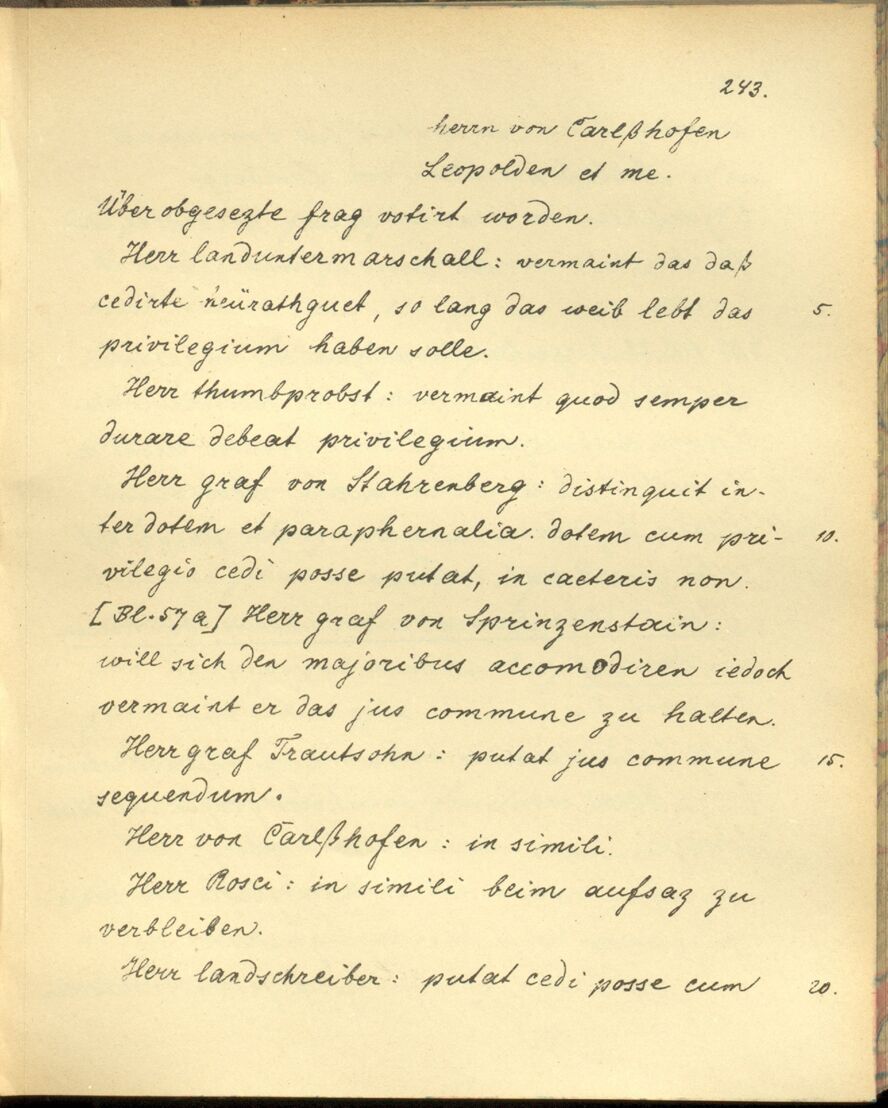 243.
herrn von Carlßhofen
Leopolden et me.
Überobgesezte frag votirt worden.
Herr landuntermarschall: vermaint das daß
cedirte heürathguet, so lang das weib lebt das 5.
privilegium haben solle.
Herr thumbprobst: vermaint quod semper
durare debeat privilegium.
Herr graf von Stahrenberg: distinguit in-
ter dotem et paraphernalia. dotem cum pri- 10.
vilegio cedi posse putat, in caeteris non.
[Bl. 57a] Herr graf von Sprinzenstain:
will sich den majoribus accomodiren iedoch
vermaint er das jus commune zu halten.
Herr graf Trautsohn: putat jus commune 15.
sequendum.
Herr von Carlßhofen: in simili.
Herr Rosci: in simili beim aufsaz zu
verbleiben.
Herr landschreiber: putat cedi posse cum 20.